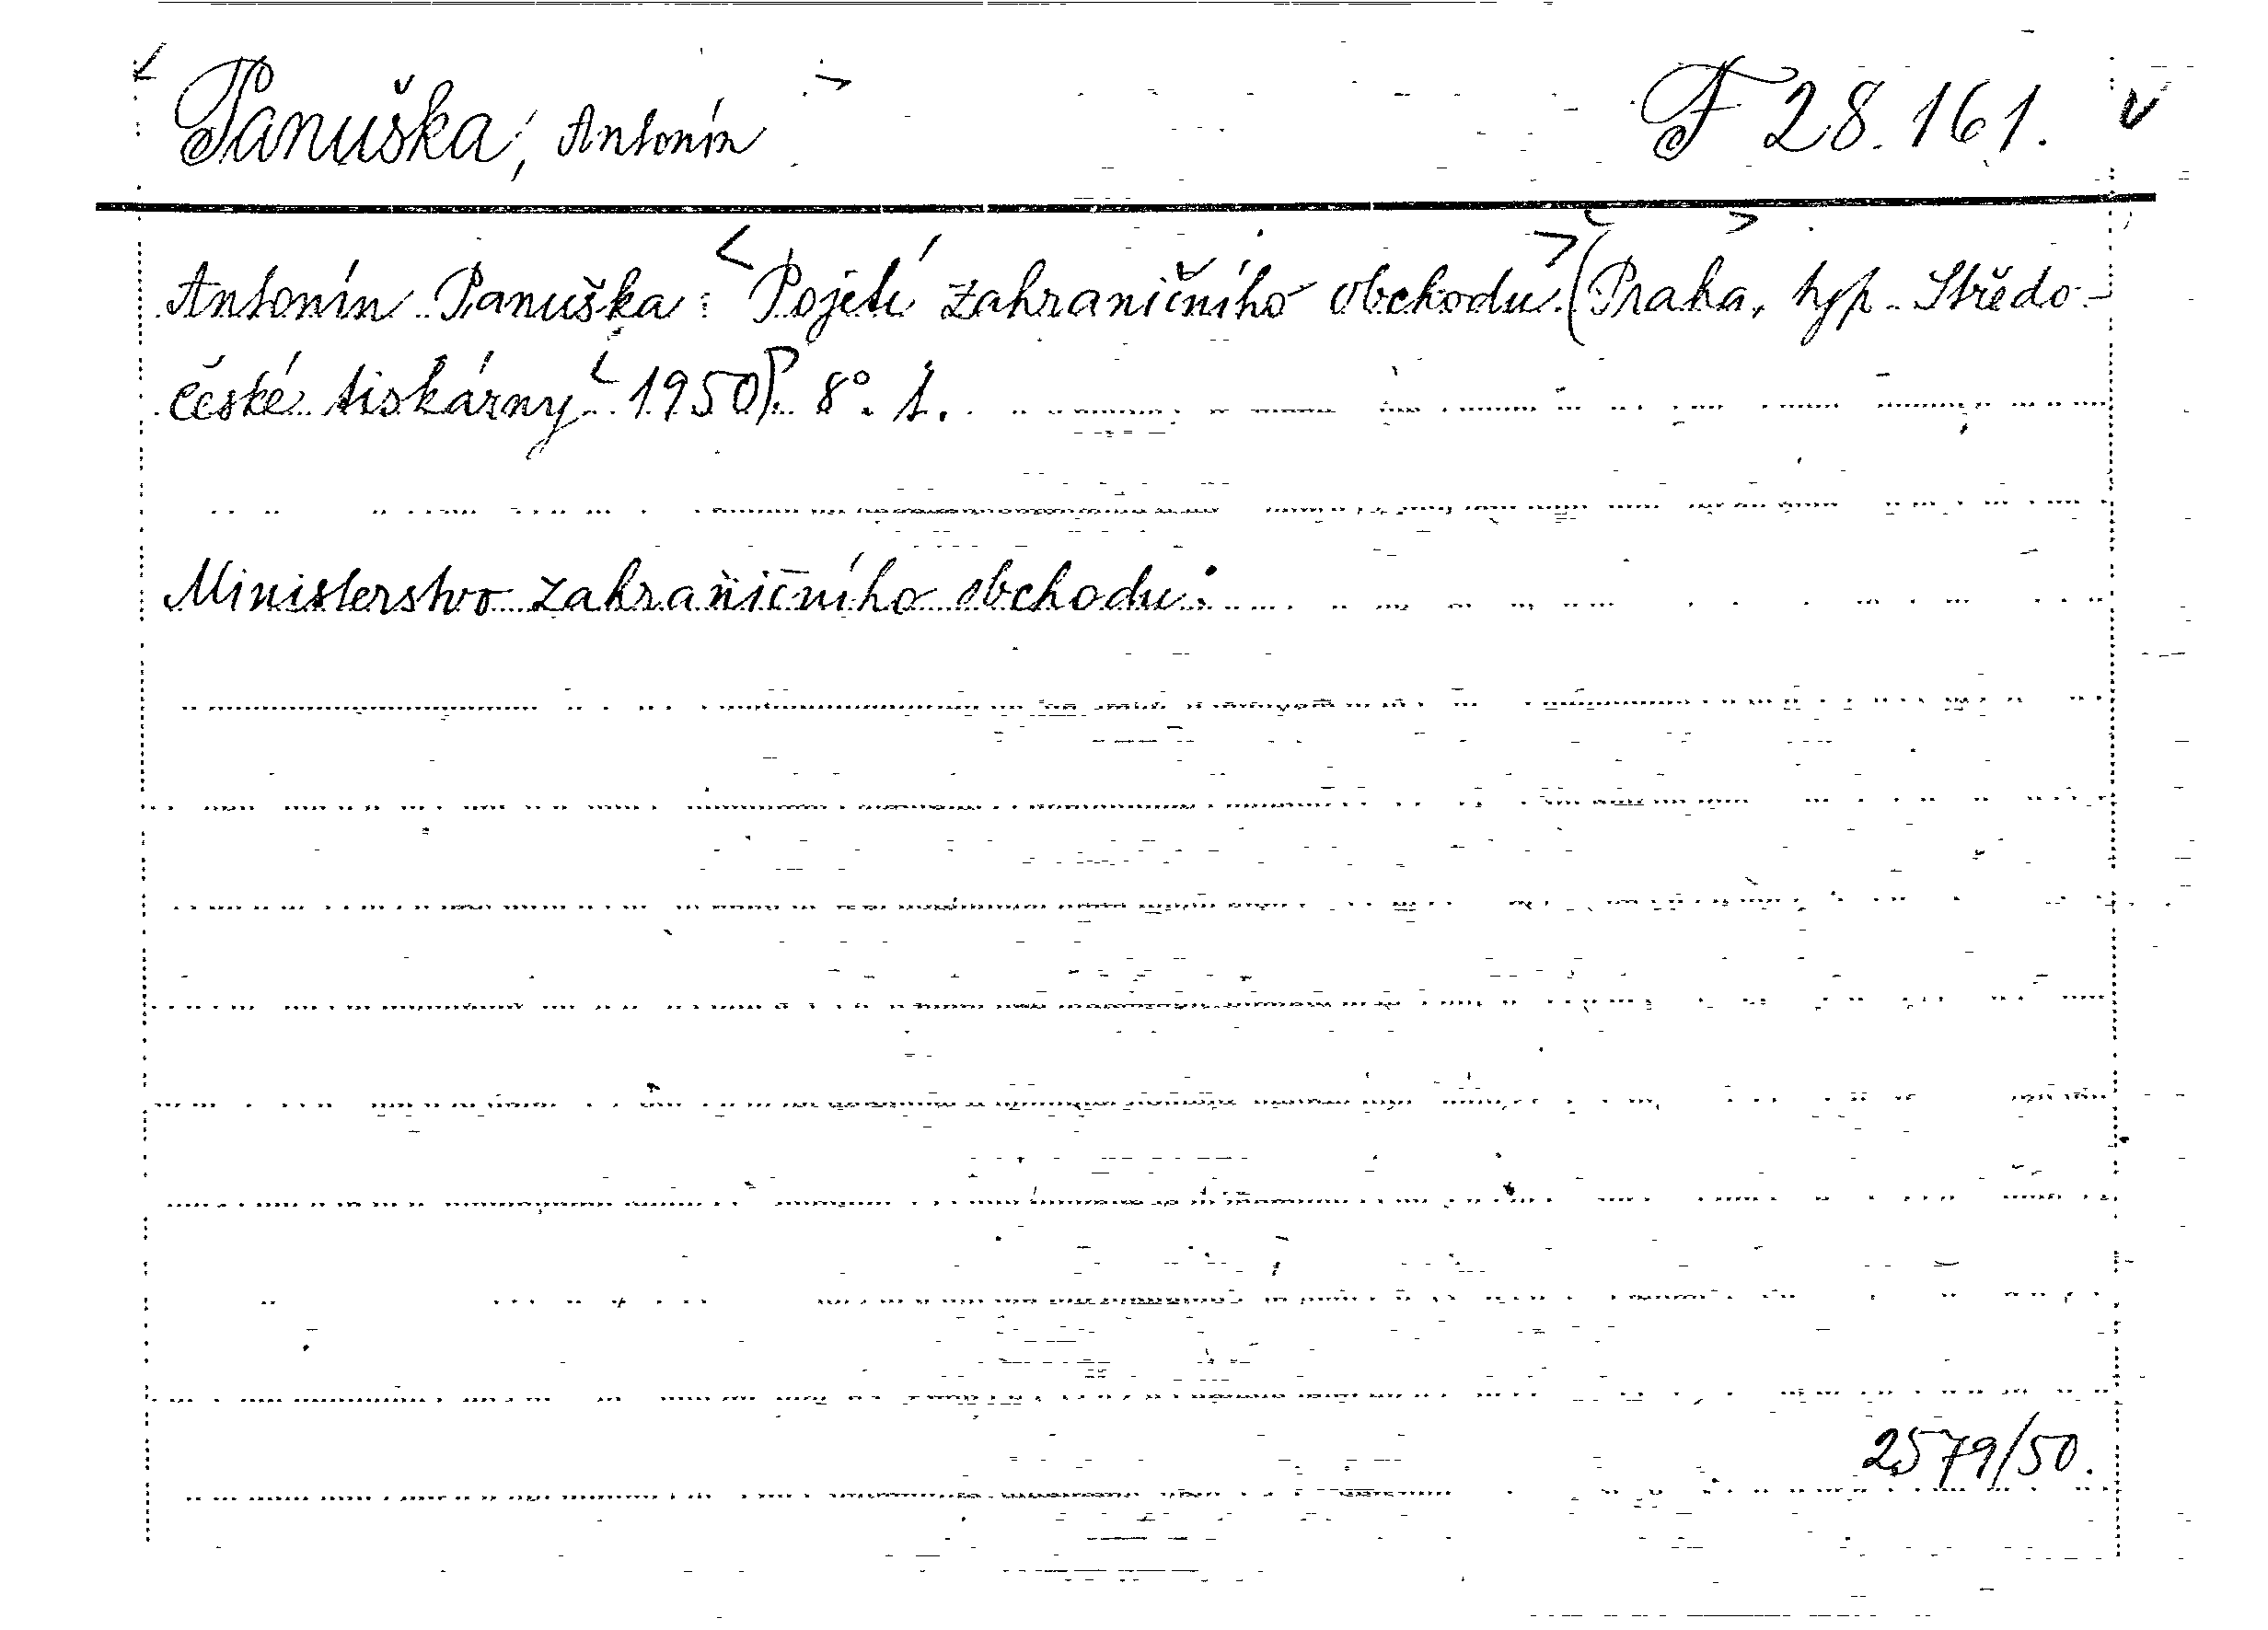 Panuška, Antonín F 28.161.
Antonín Panuška: Pojetí zahraničního obchodu. (Praha, typ. Středo-
české tiskárny 1950). 8°. 1.
Ministerstvo zahraničního obchodu:
2579/50.